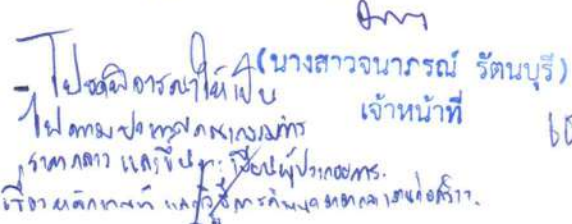 (นางสาวจนาภรณ์ รัตนบุรี)
เจ้าหน้าที่
- โปรดพิจารณาให้เป็น
ไปตามประกาศคณะกรรมการ
ราคากลาง และขึ้นทะเบียนผู้ประกอบการ
เรื่อง หลักเกณฑ์ และวิธีการกำหนดราคากลางงานก่อสร้าง.